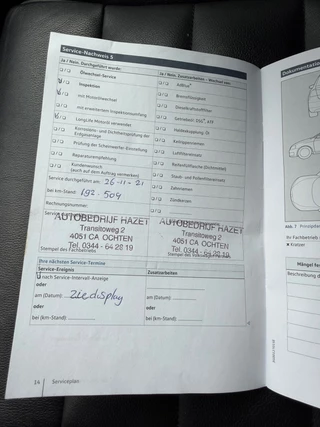 Service-Nachweis 5
Ja / Nein, Durchgeführt wurde:
Ölwechsel-Service
Inspektion
mit Motorölwechsel
mit erweitertem Inspektionsumfang
LongLife Motoröl verwendet
Korrosions- und Dichtheitsprüfung der Erdgasanlage
Prüfung der Scheinwerfer-Einstellung
Reparaturempfehlung
Kundenwunsch
(auch auf dem Auftrag vermerken)
Service durchgeführt am: 26-11-21
bei km-Stand: 192.509
Rechnungsnummer:
AUTOBEDRIJF HAZET
Transitoweg 2
4051 CA OCHTEN
Tel. 0344 - 64 28 19
Stempel des Fachbetriebs
Ja / Nein, Zusatzarbeiten - Wechsel von:
AdBlue
Bremsflüssigkeit
Dieselkraftstofffilter
Getriebeöl: DSG, ATF
Haldexkupplung: Öl
Keilrippenriemen
Luftfiltereinsatz
Reifenfüllflasche
Staub- und Pollenfiltereinsatz
Zahnriemen
Zündkerzen
AUTOBEDRIJF HAZET
Transitoweg 2
4051 CA OCHTEN
Tel. 0344 - 64 28 19
Ihre nächsten Service-Termine
Service-Ereignis
Zusatzarbeiten
nach Service-Intervall-Anzeige
oder
am (Datum) Zie display
oder
bei (km-Stand)
am (Datum)
oder
bei (km-Stand)
14 Serviceplan
Dokumentation
Abb. 7
Ihr Fachbetrieb
Kratzer
Mängel
Beschreibung d